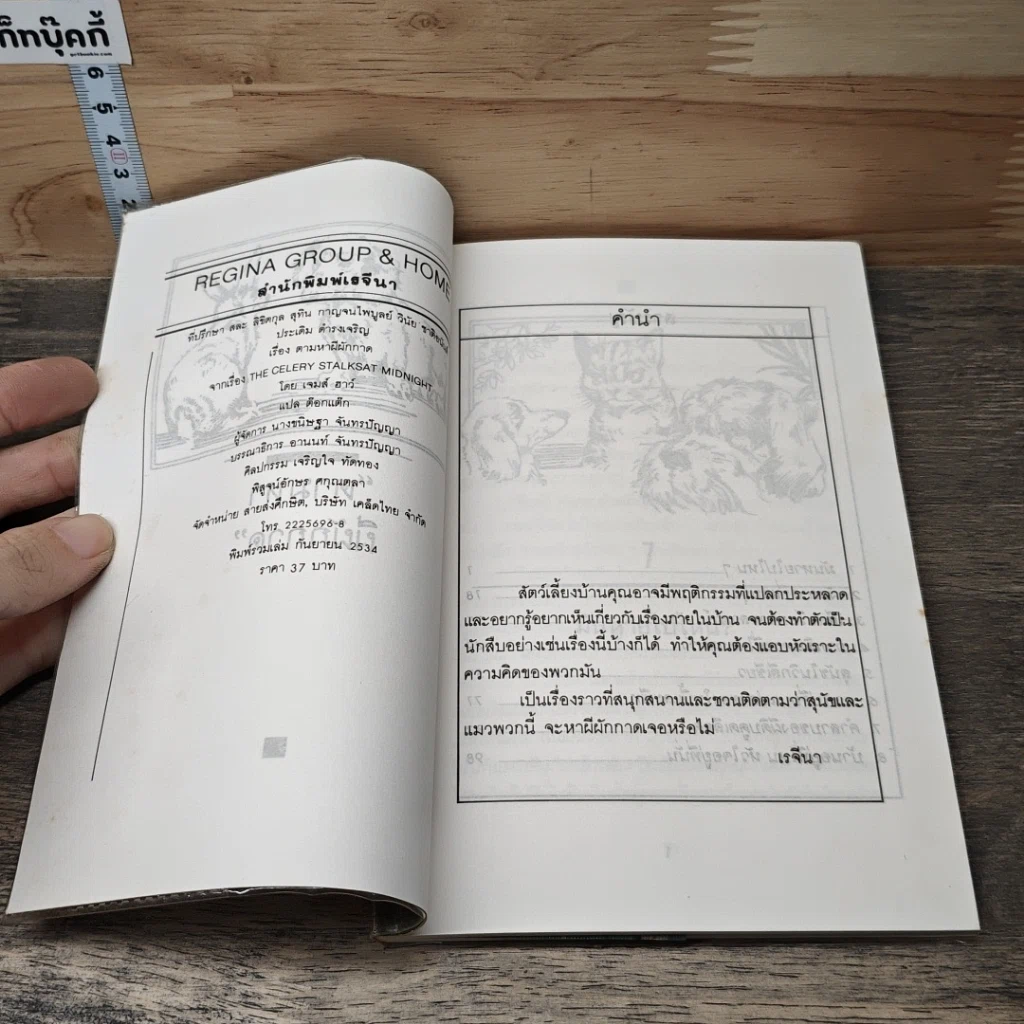 ก็ทบุ๊คกี้
6
5
4
11
3
2
REGINA GROUP & HOME
สำนักพิมพ์เรจีนา
ที่ปรึกษา สละ ลิขิตกุล สุทิน กาญจนไพบูลย์ วินัย
ประเดิม ดำรงเจริญ
เรื่อง ตามหาผีผักกาด
จากเรื่อง THE CELERY STALKSAT MIDNIGHT
โดย เจมส์ ฮาว์
แปล ต๊อกแต๊ก
ผู้จัดการ นางขนิษฐา จันทรปัญญา
บรรณาธิการ อานนท์ จันทรปัญญา
ศิลปกรรม เจริญใจ ทัดทอง
พิสูจน์อักษร ศกุณตลา
จัดจำหน่าย สายส่งศึกษิต, บริษัท เคล็ดไทย จำกัด
โทร 2225696-8
พิมพ์รวมเล่ม กันยายน 2534
ราคา 37 บาท
คำนำ
สัตว์เลี้ยงบ้านคุณอาจมีพฤติกรรมที่แปลกประหลาด
และอยากรู้อยากเห็นเกี่ยวกับเรื่องภายในบ้าน จนต้องทำตัวเป็น
นักสืบอย่างเช่นเรื่องนี้บ้างก็ได้ ทำให้คุณต้องแอบหัวเราะใน
ความคิดของพวกมัน
เป็นเรื่องราวที่สนุกสนานและชวนติดตามว่าสุนัขและ
แมวพวกนี้ จะหาผีผักกาดเจอหรือไม่
เรจีนา